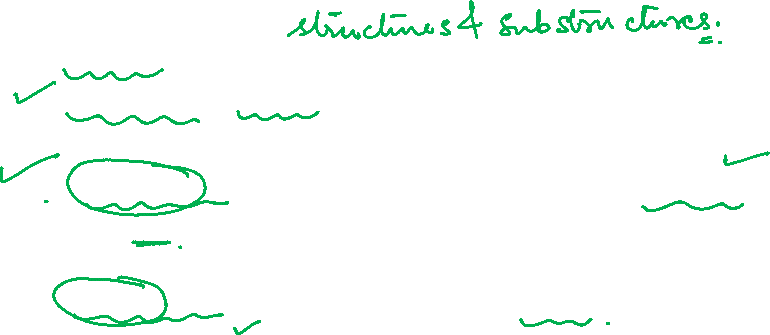 structures & substructures.